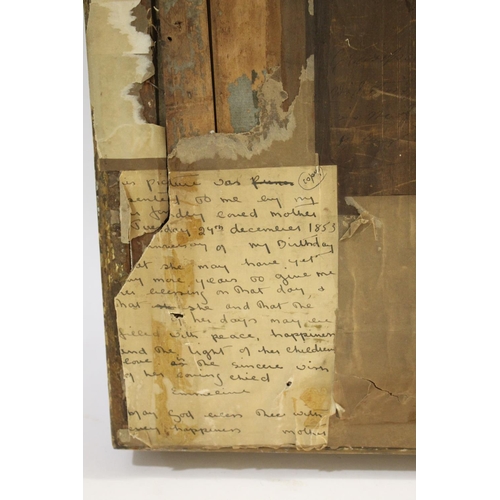 (copy)
picture was
to me by my
loved mother
Tuesday 27th december 1853
of my Birthday
that she may have yet
many more years to give me
her blessing on that day &
that she and that the
of her days may be
filled with peace, happiness
and the light of her children
love is the sincere wish
of her loving child
Emmeline
May God bless thee with
every happiness mother